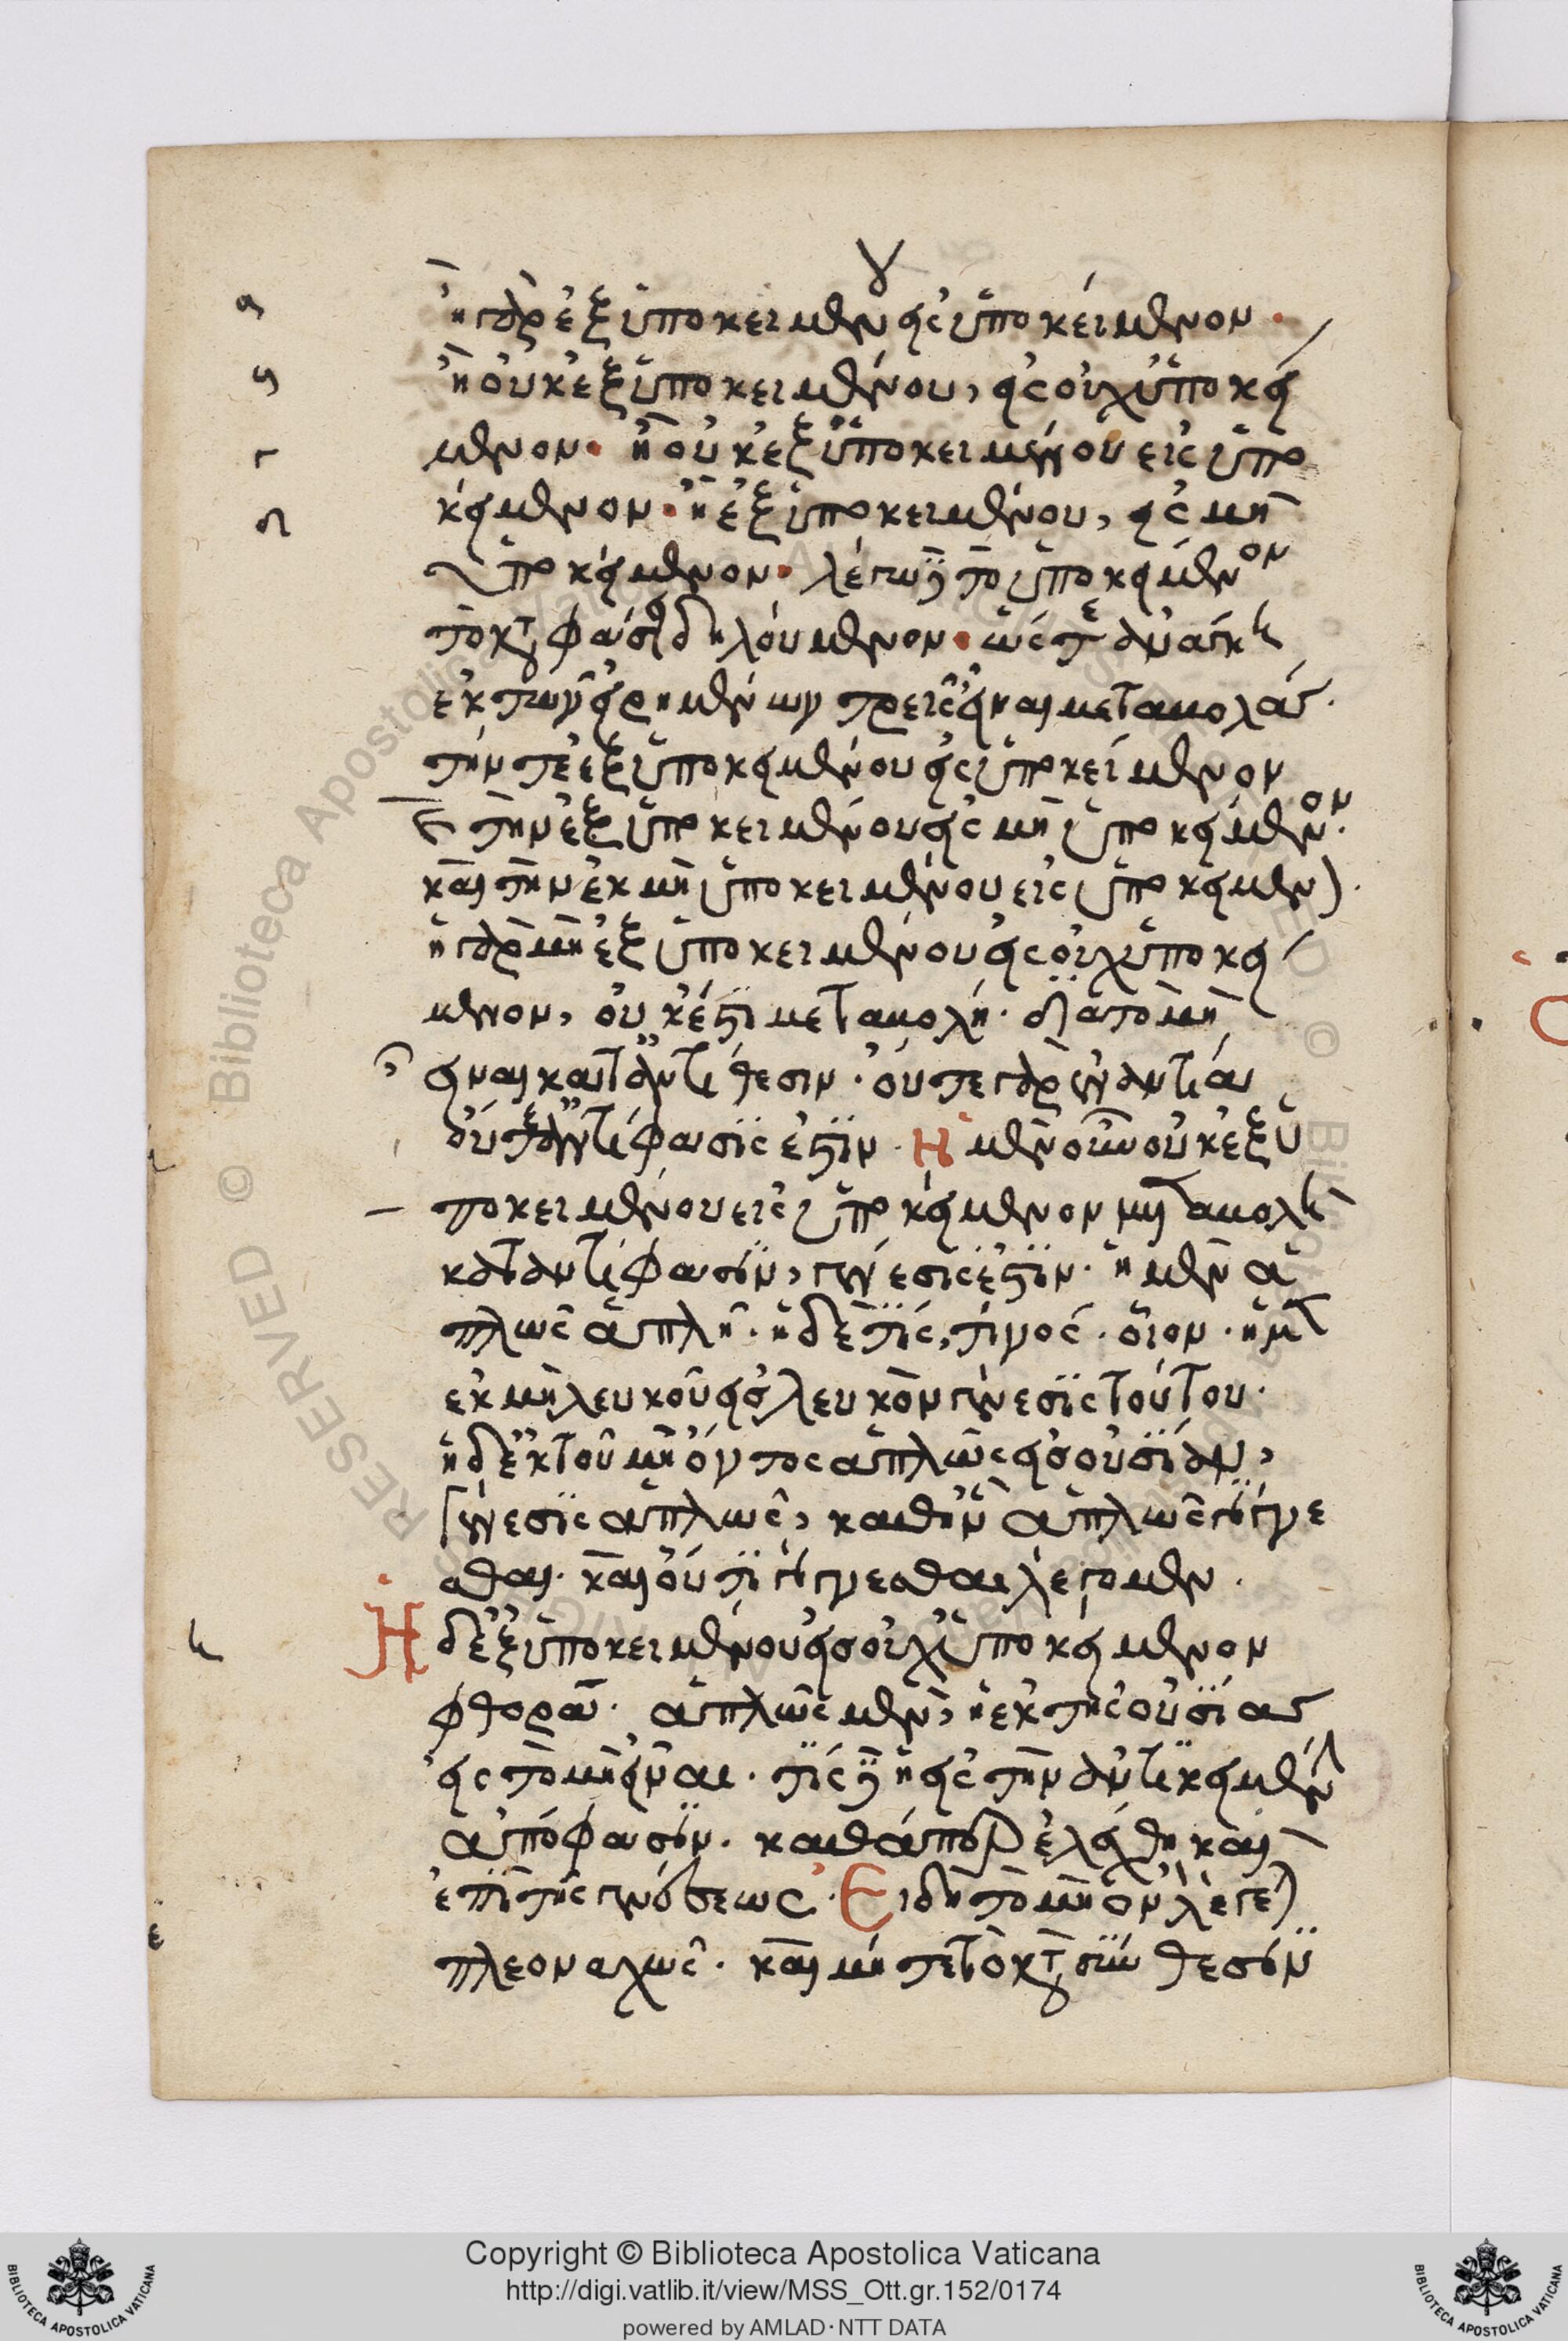 ἢ γὰρ ἐξ ὑποκειμένου εἰς ὑποκείμενον·
ἢ οὐκ ἐξ ὑποκειμένου, εἰς οὐχ ὑποκεί
μενον· ἢ οὐκ ἐξ ὑποκειμένου εἰς ὑπο
κείμενον· ἢ ἐξ ὑποκειμένου, εἰς μὴ
ὑποκείμενον· λέγω δὲ τὸ ὑποκείμενον
τὸ καταφάσει δηλούμενον· ὥστε ἀνάγκη
ἐκ τῶν εἰρημένων τρεῖς εἶναι μεταβολάς·
τήν τε ἐξ ὑποκειμένου εἰς ὑποκείμενον
καὶ τὴν ἐξ ὑποκειμένου εἰς μὴ ὑποκείμενον·
καὶ τὴν ἐκ μὴ ὑποκειμένου εἰς ὑποκείμενον·
ἡ γὰρ μὴ ἐξ ὑποκειμένου εἰς οὐχ ὑποκεί
μενον, οὐκ ἔστι μεταβολή· διὰ τὸ μὴ
εἶναι κατ' ἀντίθεσιν· οὔτε γὰρ ἐναντία
οὔτε ἀντίφασίς ἐστιν· Ἡ μὲν οὖν οὐκ ἐξ ὑ
ποκειμένου εἰς ὑποκείμενον μεταβολὴ
κατ' ἀντίφασιν, γένεσίς ἐστιν· ἡ μὲν ἁ
πλῶς ἁπλῆ· ἡ δὲ τίς, τινός· οἷον· ἡ μὲν
ἐκ μὴ λευκοῦ εἰς λευκὸν γένεσις τούτου·
ἡ δ' ἐκ τοῦ μὴ ὄντος ἁπλῶς εἰς οὐσίαν,
γένεσις ἁπλῶς, καθ' ἣν ἁπλῶς γίγνε
σθαι· καὶ οὐ τὶ γίγνεσθαι λέγομεν·
Ἡ δ' ἐξ ὑποκειμένου εἰς οὐχ ὑποκείμενον
φθορά· ἁπλῶς μὲν, ἡ ἐκ τῆς οὐσίας
εἰς τὸ μὴ εἶναι· τὶς δὲ ἡ εἰς τὴν ἀντικειμένην
ἀπόφασιν· καθάπερ ἐλέχθη καὶ
ἐπὶ τῆς γενέσεως· Εἰ δὴ τὸ μὴ ὂν λέγεται
πλεοναχῶς· καὶ μήτε τὸ κατὰ σύνθεσιν
Copyright © Biblioteca Apostolica Vaticana
http://digi.vatlib.it/view/MSS_Ott.gr.152/0174
powered by AMLAD·NTT DATA